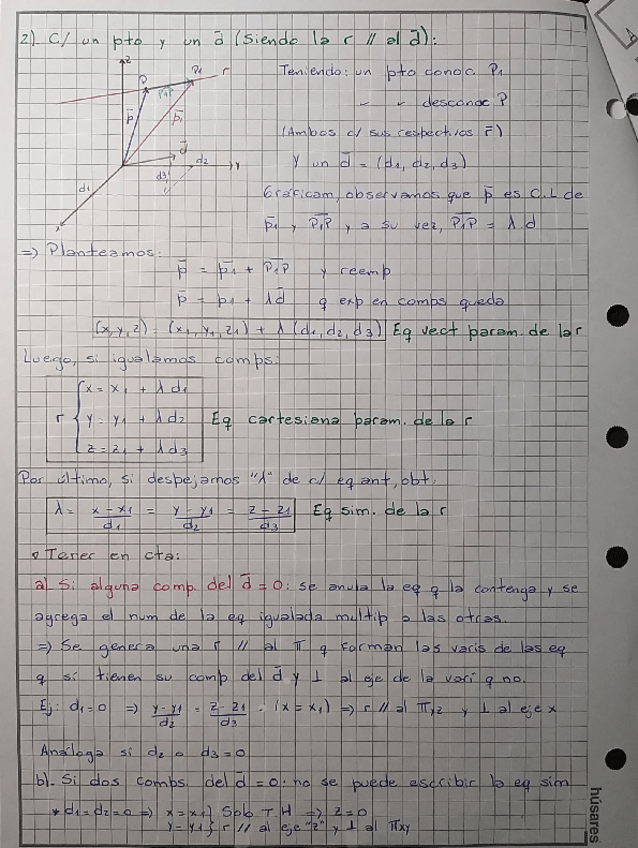 2). C/ un pto y un d̄ (siendo la r // al d̄):
z
P
P1
r
P1P
p̄
p̄1
d̄
d2
y
d3
d1
Teniendo: un pto conoc. P1
" " desconoc P
(Ambos c/ sus respectivos r̄)
Y un d̄ = (d1, d2, d3)
Gráficam, observamos que p̄ es C.L de
p̄1 y P1P y a su vez, P1P = λ d
=> Planteamos:
p̄ = p̄1 + P1P y reemp
p̄ = p1 + λd̄ q exp en comps queda
(x,y,z) = (x1, y1, z1) + λ (d1, d2, d3) Eq vect param. de la r
Luego, si igualamos comps:
x = x1 + λ d1
r { y = y1 + λ d2 Eq cartesiana param. de la r
z = z1 + λ d3
Por último, si despejamos "λ" de c/ eq ant, obt.
λ = (x - x1)/d1 = (y - y1)/d2 = (z - z1)/d3 Eq sim. de la r
Tener en cta:
a). Si alguna comp. del d̄ = 0: se anula la eq q la contenga y se
agrega el num de la eq igualada multip a las otras.
=> Se genera una r // al π q forman las varis de las eq
q sí tienen su comp del d̄ y ⊥ al eje de la vari q no.
Ej: d1=0 => (y-y1)/d2 = (z-z1)/d3 . (x = x1) => r // al πyz y ⊥ al eje x
Análoga si d2 o d3 = 0
b). Si dos combs. del d̄ = 0: no se puede escribir la eq sim
* d1=d2=0 => x = x1 } Sob T.H => z=0
y = y1 } r // al eje "z" y ⊥ al πxy
húsares